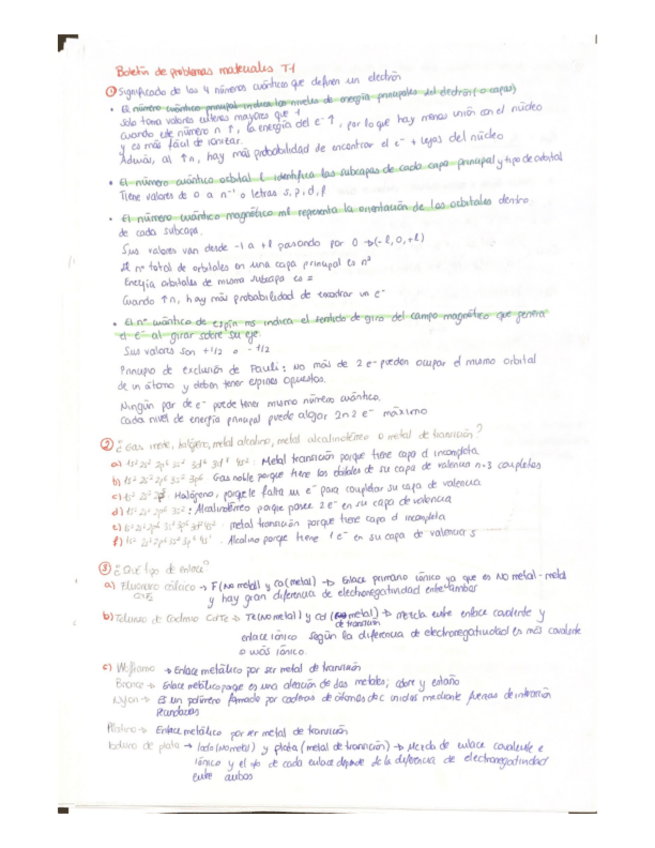 Boletín de problemas materiales T-1
① Significado de los 4 números cuánticos que definen un electrón
• El número cuántico principal indica los niveles de energía principales del electrón (o capas)
Solo toma valores enteros mayores que 1
Cuando este número n ↑, la energía del e⁻ ↑, por lo que hay menos unión con el núcleo
y es más fácil de ionizar.
Además, al ↑n, hay más probabilidad de encontrar el e⁻ + lejos del núcleo
• El número cuántico orbital l identifica las subcapas de cada capa principal y tipo de orbital
Tiene valores de 0 a n⁻¹ o letras s, p, d, f
• El número cuántico magnético ml representa la orientación de los orbitales dentro
de cada subcapa.
Sus valores van desde -l a +l pasando por 0 → (-l, 0, +l)
El nº total de orbitales en una capa principal es n²
Energía orbitales de misma subcapa es =
Cuando ↑n, hay más probabilidad de encontrar un e⁻
• El nº cuántico de espín ms indica el sentido de giro del campo magnético que genera
el e⁻ al girar sobre su eje.
Sus valores son +1/2 o -1/2
Principio de exclusión de Pauli: No más de 2 e- pueden ocupar el mismo orbital
de un átomo y deben tener espines opuestos.
Ningún par de e⁻ puede tener mismo número cuántico.
Cada nivel de energía principal puede alojar 2n2 e⁻ máximo
② ¿Gas inerte, halógeno, metal alcalino, metal alcalinotérreo o metal de transición?
a) Metal transición porque tiene capa d incompleta
b) 1s² 2s² 2p⁶ 3s² 3p⁶ Gas noble porque tiene los orbitales de su capa de valencia n=3 completos
c) 1s² 2s² Halógeno, porque le falta un e⁻ para completar su capa de valencia
d) 1s² 2s² 2p⁶ 3s²: Alcalinotérreo porque posee 2e⁻ en su capa de valencia
e) metal transición porque tiene capa d incompleta
f) 1s² 2s² 2p⁶ 3s² 3p⁶ 4s¹. Alcalino porque tiene 1 e⁻ en su capa de valencia s
③ ¿Qué tipo de enlace?
a) Fluoruro cálcico → F (No metal) y Ca (metal) → Enlace primario iónico ya que es No metal - metal
y hay gran diferencia de electronegatividad entre ambas
b) Telururo de Cadmio CdTe → Te (No metal) y Cd (metal) → mezcla entre enlace covalente y
de transición
enlace iónico según la diferencia de electronegatividad es más covalente
o más iónico.
c) Wolframio → Enlace metálico por ser metal de transición
Bronce → Enlace metálico porque es una aleación de dos metales; cobre y estaño
Nylon → Es un polímero formado por cadenas de átomos de C unidos mediante fuerzas de interacción
secundarias
Platino → Enlace metálico por ser metal de transición
Ioduro de plata → Iodo (No metal) y plata (metal de transición) → Mezcla de enlace covalente e
iónico y el % de cada enlace depende de la diferencia de electronegatividad
entre ambos